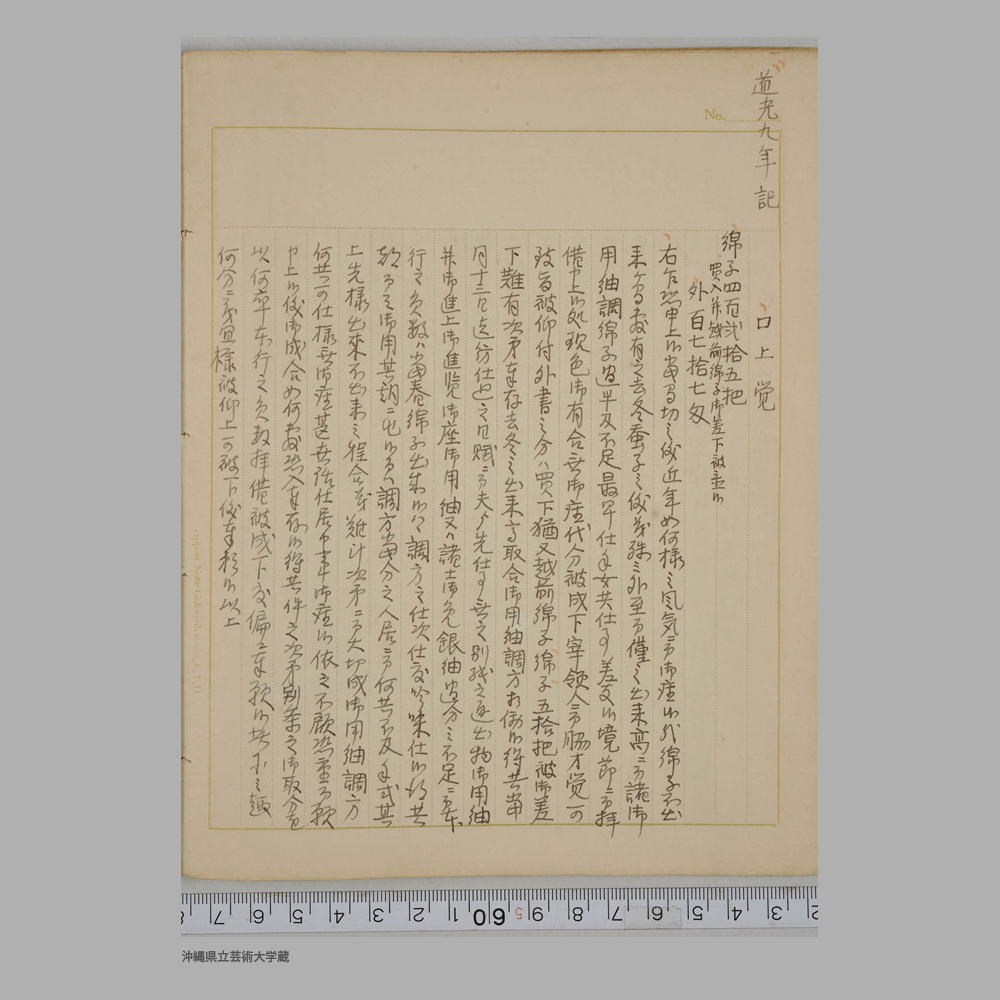 道光九年記
No.
口上覚
綿子四百弐拾五把
買入并越前綿子御差下被置候
外百七拾七匁
右乍恐申上候当島切之儀近年如何様之風気ニ而御座候哉綿子不出
来ニ而有之去冬蚕子之儀茂殊之外至而僅之出来高ニ而諸御
用紬調綿子過半及不足最早仕手女共仕事差支候境節ニ而拝
借申上候処現色御有合無御座代分被成下宰領人ニ而脇才覚可
致旨被仰付外書之分ハ買下猶又越前綿子綿子五拾把被御差
下難有次第奉存去冬之出来高取合御用紬調方相働候得共当
月十三日迄紡仕迄之日賦ニ而夫より先仕事無之別段之進出物御用紬
并御進上御進覧御座御用紬又ハ諸士御免銀紬過分之不足ニ而本
行之員数ハ当春綿子出来候ハヽ調方之仕次仕度吟味仕候得共
却而之御用其期ニ屯候而ハ調方当分之人居ニ而何共不及手式其
上先様出来不出来之程合茂難計次第ニ而大切成御用紬調方
何共可仕様無御座甚共詰仕居申事御座候依之不顧恐重而願
申上候儀御成合如何敷恐入奉存候得共件之次第別条之御取分を
以何卒本行之員数拝借被成下度偏ニ奉願候此等之趣
何分ニ茂宜様被仰上可被下儀奉頼候以上
沖縄県立芸術大学蔵